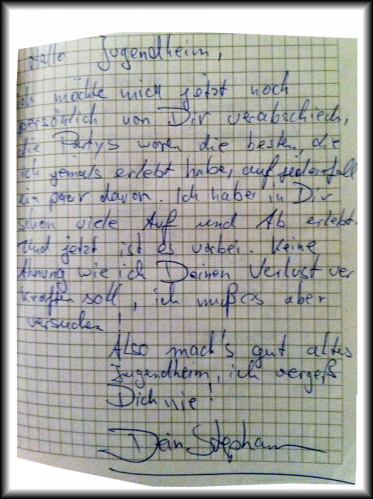 Hallo Jugendheim,
ich möchte mich jetzt noch
persönlich von Dir verabschied,
die Partys waren die besten, die
ich jemals erlebt habe, auf jedenfall
ein paar davon. Ich habe in Dir
schon viele Auf und Ab erlebt.
Und jetzt ist es vorbei. Keine
Ahnung wie ich Deinen Verlust ver
kraften soll, ich muß es aber
versuchen!
Also mach's gut altes
Jugendheim, ich vergeß
Dich nie!
Dein Stephan